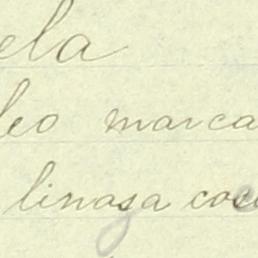 ela
leo marca
linasa coci